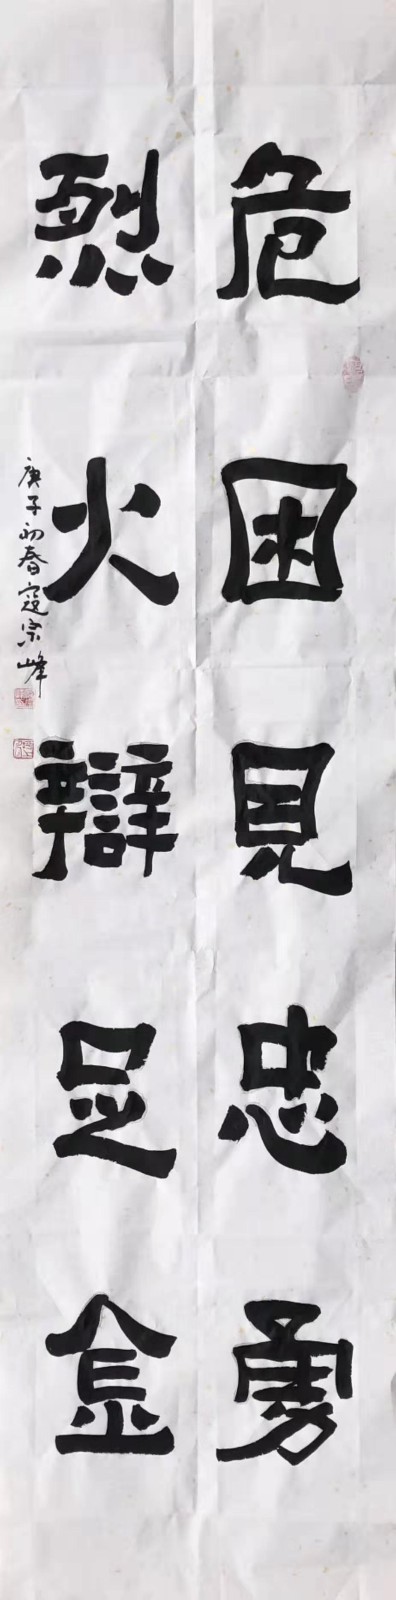 危困見忠勇
烈火辯足金
庚子初春寇宗峰